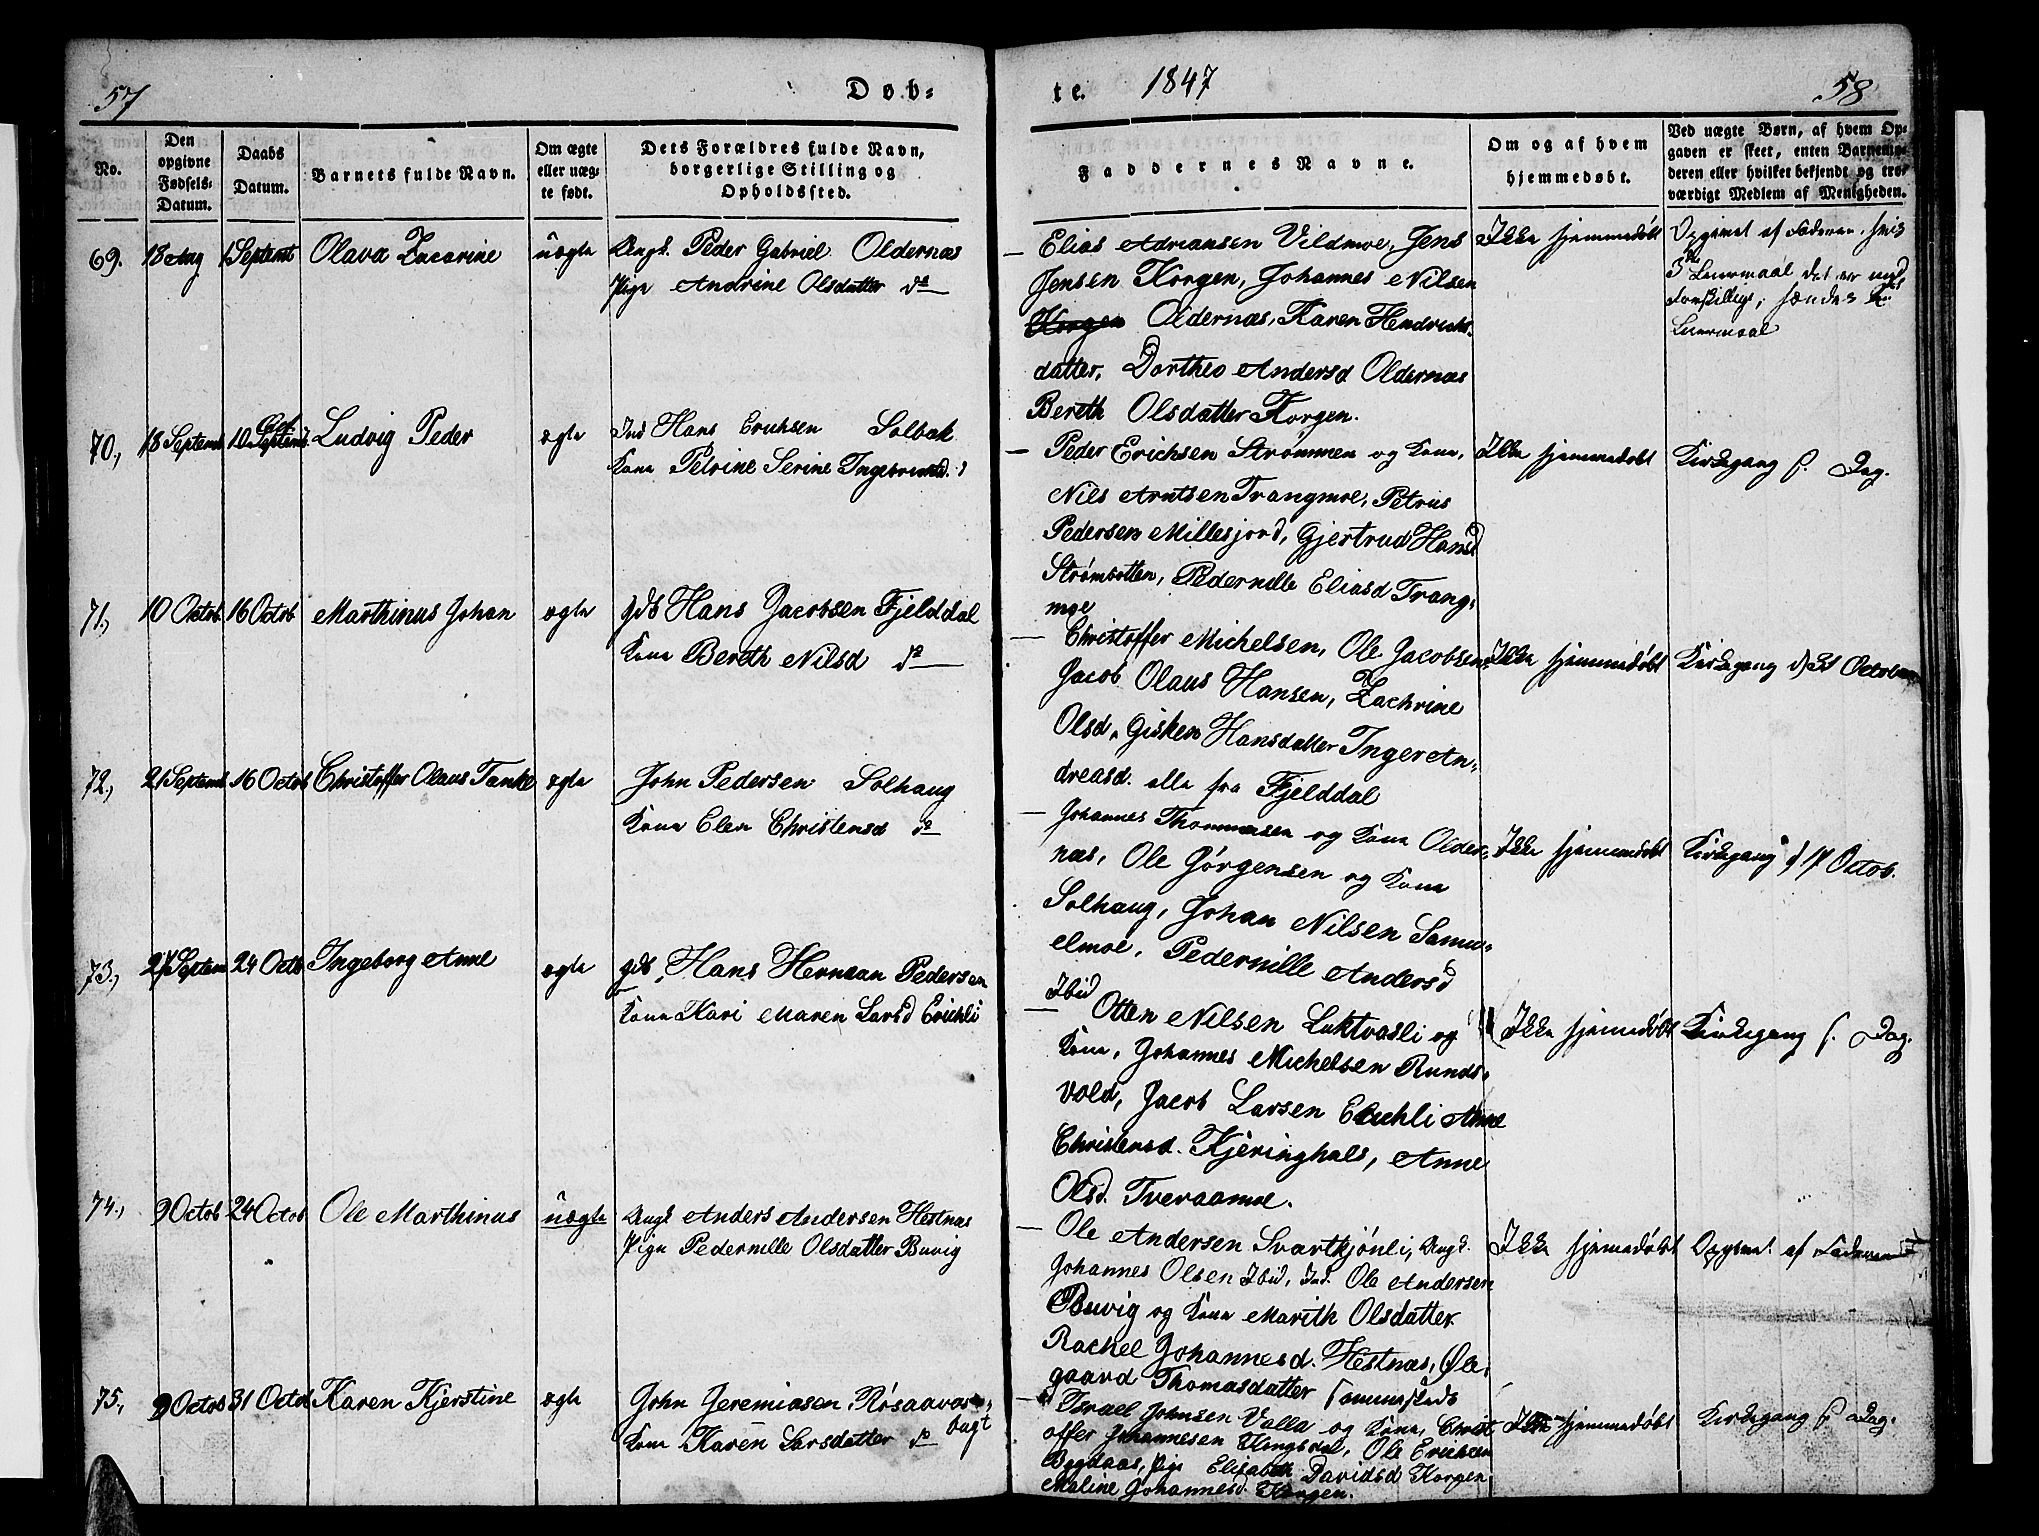 57
Døb-
te.
1847
58
No.
Den opgivne Fødsels-Datum.
Daabs Datum.
Barnets fulde Navn.
Om ægte eller uæg-te født.
Dets Forældres fulde Navn, borgerlige Stilling og Opholdssted.
Faddernes Navne.
Om og af hvem hjemmedøbt.
Ved uægte Børn, af hvem Op-gaven er skeet, enten Barnemo-deren eller hvilket bekjendt og tro-værdigt Medlem af Menigheden.
69. 18 Aug 1 Septemb Olava Zacarine uægte Ungk. Peder Gabriel Oldernæs
Pige Andrine Olsdatter do
Elias Adriansen Vildmoe, Jens
Jensen Korgen, Johannes Nilsen
Korgen Oldernæs, Karen Hendriks-
datter, Dorthea Andersd Oldernæs
Bereth Olsdatter Korgen.
Ikke hjemmedøbt
Opgivet af Faderen, hvis
3die Leiermaal det er med
forskjellige,
Leiermaal
70., 18 Septemb 10 Octb Septemb Ludvig Peder ægte Ind Hans Erichsen Solbak
Kone Petrine Serine Ingebrigtsd.
Peder Erichsen Strømmen og Kone,
Nils Arntsen Trangmoe, Petrus
Pedersen Millesjord, Gjertrud Hansd
Strømbotten, Pedernille Eliasd Trang-
moe
Ikke hjemmedøbt
Kirkegang s. Dag.
71., 10 Octob 16 Octob Marthinus Johan ægte Gdb Hans Jacobsen Fjelddal
Kone Bereth Nilsd do
Christoffer Michelsen, Ole Jacobsen
Jacob Olaus Hansen, Zachrine
Olsd, Gisken Hansdatter Inger An-
dreasd. alle fra Fjelddal
Ikke hjemmedøbt
Kirkegang d 31 October
72., 21 Septemb 16 Octob Christoffer Olaus Tanke ægte John Pedersen Solhaug
Kone Elen Christensd do
Johannes Thommesen og Kone Older-
næs, Ole Jørgensen og Kone
Solhaug, Johan Nilsen Samu-
elmoe, Pedernille Andersd
Ibid
Ikke hjemmedøbt
Kirkegang d 17 Octob.
73., 27 Septem 24 Octb Ingeborg Anne ægte Gdb, Hans Herman Pedersen
Kone Kari Maren Larsd Erichli
Otten Nilsen Luktvasli og
Kone, Johannes Michelsen Runds-
vold, Jacob Larsen Erichli Anne
Christensd. Kjeringhals, Anne
Olsd. Tveraamoe.
Ikke hjemmedøbt
Kirkegang s. Dag.
74., 9 Octob 24 Octob Ole Marthinus uægte Ungk Anders Andersen Hestnæs
Pige Pedernille Olsdatter Buvig
Ole Andersen Svartkjønli, Ungk.
Johannes Olsen Ibid, Ind. Ole Andersen
Buvig og Kone Marith Olsdatter
Rachel Johannesd. Hestnæs, Øle-
gaard Thomasdatter sammesteds
Ikke hjemmedøbt
Opgivet af Faderen
75., 9 Octob 31 Octob Karen Kjerstine ægte John Jeremiasen, Røsaavas-
bagt
Kone Karen Larsdatter do
Israel Johnsen Valla og Kone, Christ
offer Johannesen Kongsdal, Ole Erichsen
Bygdaas, Pige Elisabeth Davidsd Korgen
Maline Johannesd. Korgen.
Ikke hjemmedøbt
Kirkegang s. Dag.